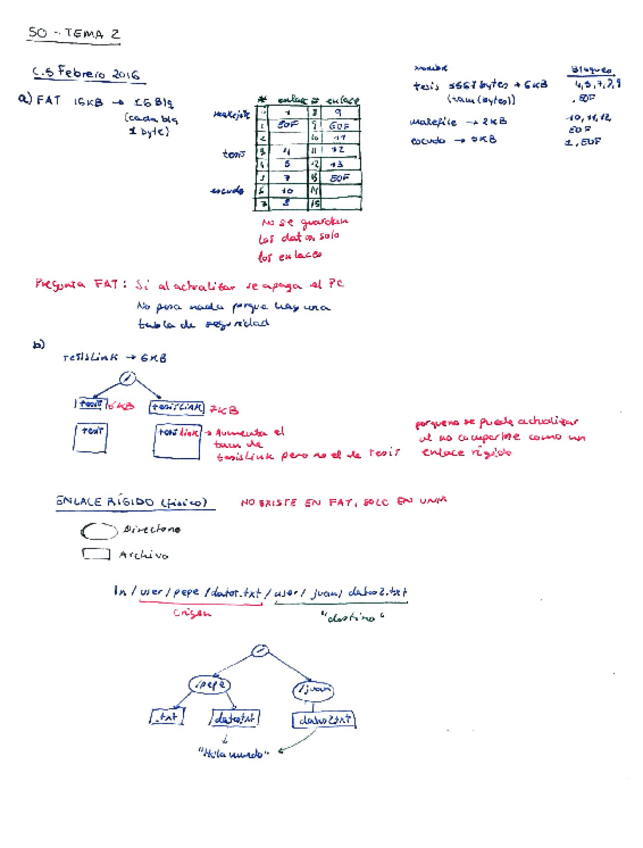 SO - TEMA 2
C.5 Febrero 2016
a) FAT 16KB → 16 Blq
(cada blq
1 byte)
nombre Bloques
tesis 5567 bytes → 6KB 4,5,7,8,9
(tam(bytes)) , EOF
makefile → 2KB 10,11,12,
EOF
escudo → KB 1, EOF
# enlace # enlace
makefile 1 8 9
1 EOF 9 EOF
2 10 11
tesis 3 4 11 12
4 5 12 13
5 7 13 EOF
escudo 6 10 14
7 8 15
No se guardan
los datos, solo
los enlaces
Pregunta FAT: Si al actualizar se apaga el PC
No pasa nada porque hay una
tabla de seguridad
b)
tesisLink → 6KB
/
tesis 6KB tesisLink 7KB
tesis tesislink → Aumenta el
tam de
tesisLink pero no el de tesis
porque no se puede actualizar
al no compartirse como un
enlace rígido
ENLACE RÍGIDO (físico) NO EXISTE EN FAT, SOLO EN UNIX
Directorio
Archivo
ln /user/pepe/datos.txt /user/juan/datos2.txt
origen "destino"
/
/pepe /juan
.txt datos.txt datos2.txt
"Hola mundo"